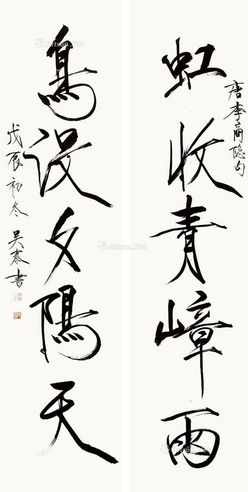 唐李商隐句
虹收青嶂雨
鳥没夕陽天
戊辰初冬 吴 書